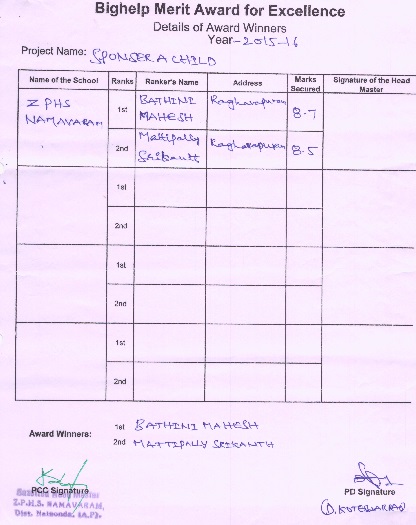 Bighelp Merit Award for Excellence
Details of Award Winners
Year-2015-16
Project Name: SPONSER A CHILD
Name of the School Ranks Ranker's Name Address Marks Secured Signature of the Head Master
ZPHS NAMAVARAM 1st BATHINI MAHESH Raghavapuram 8.7
2nd Mattipally Srikanth Raghavapuram 8.5
1st
2nd
1st
2nd
1st
2nd
Award Winners: 1st BATHINI MAHESH
2nd MATTIPALLY SRIKANTH
PCC Signature
PD Signature
Z.P.H.S. NAMAVARAM,
Dist. Nalgonda, (A.P).